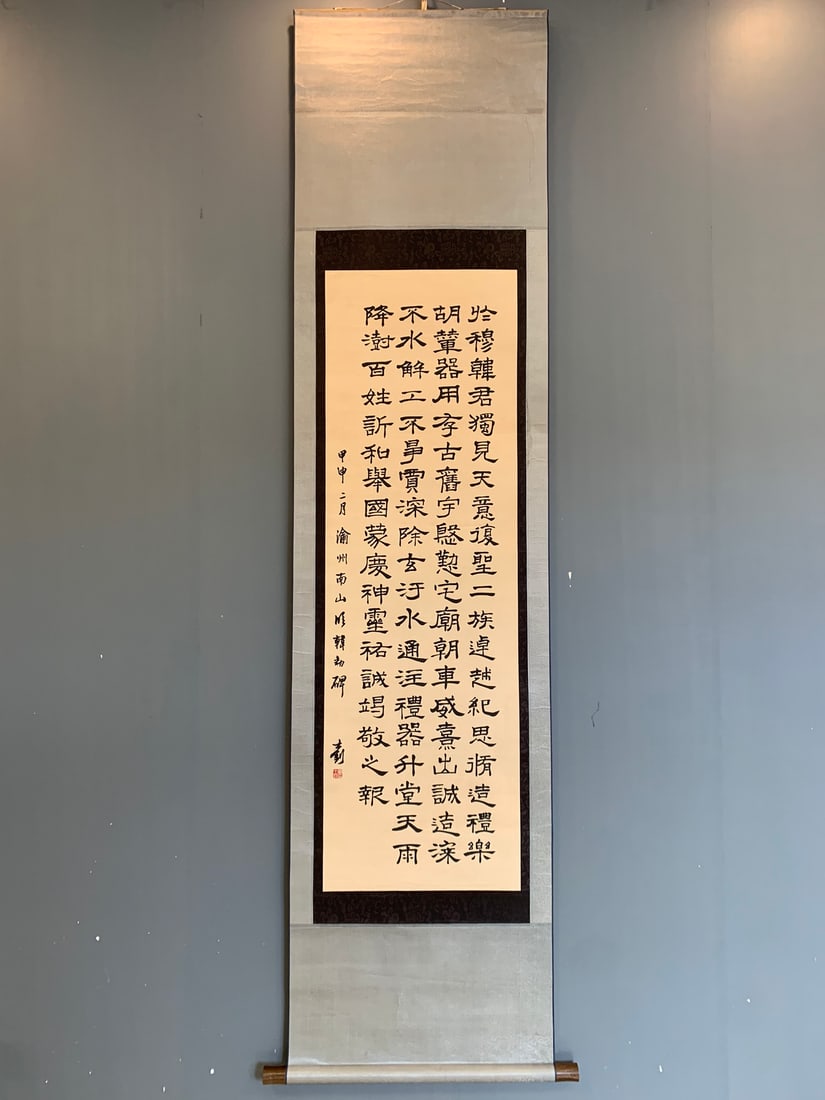 於穆韓君獨見天意復聖二族逴越紀思脩造禮樂
胡輦器用存古舊宇慇懃宅廟朝車威熹出誠造深
不水解工不爭賈深除玄汙水通注禮器升堂天雨
降澍百姓訢和舉國蒙慶神靈祐誠竭敬之報
甲申二月渝州南山臨韓勑碑